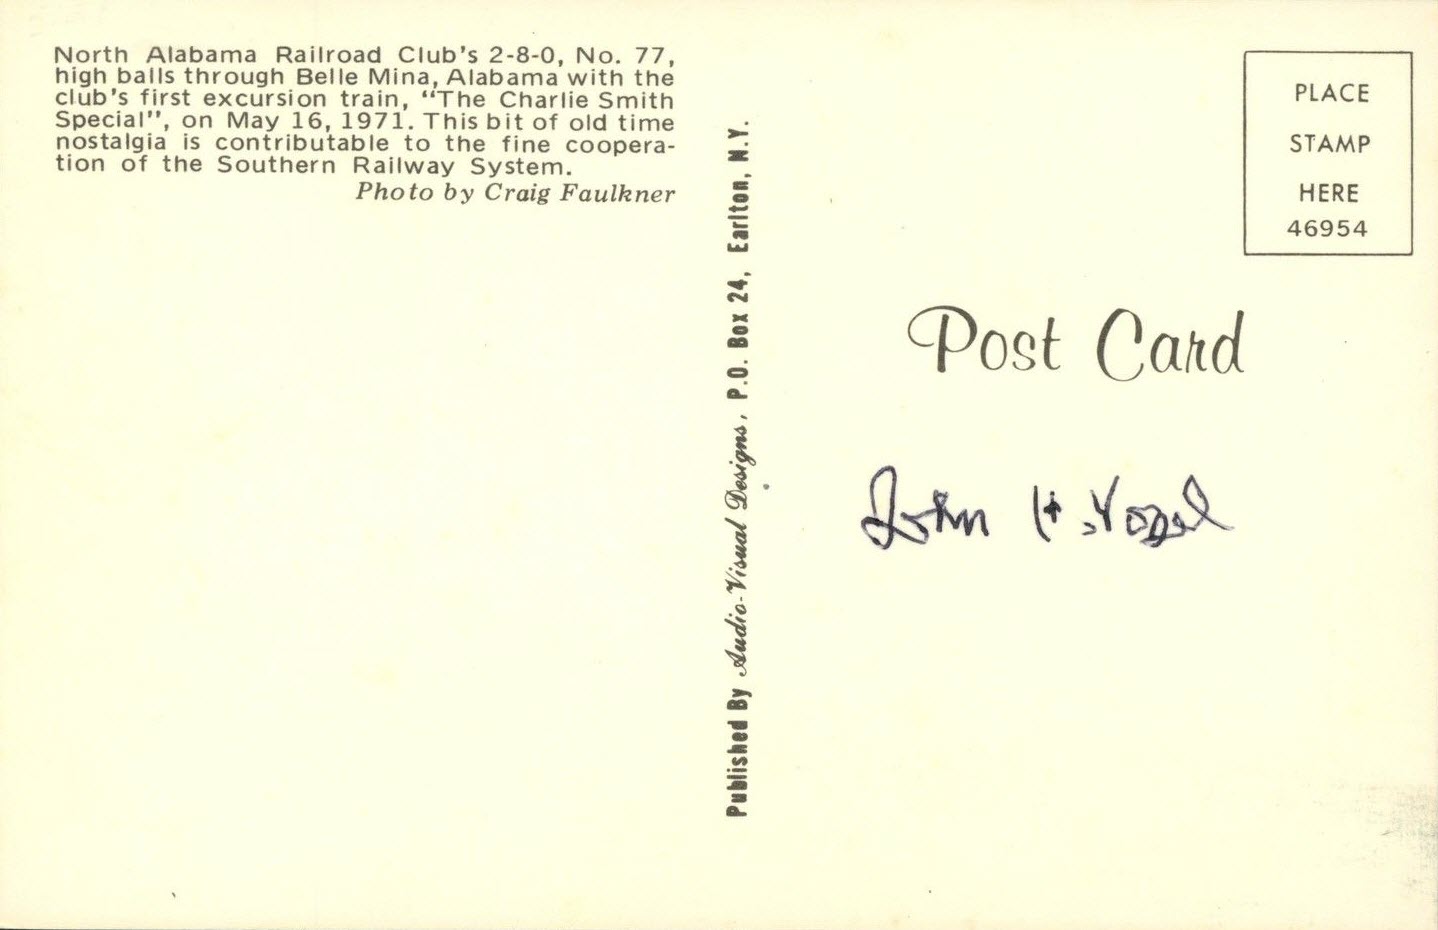 North Alabama Railroad Club's 2-8-0, No. 77,
high balls through Belle Mina, Alabama with the
club's first excursion train, “The Charlie Smith
Special”, on May 16, 1971. This bit of old time
nostalgia is contributable to the fine coopera-
tion of the Southern Railway System.
Photo by Craig Faulkner
Published By Audio-Visual Designs, P.O. Box 24, Earlton, N.Y.
PLACE
STAMP
HERE
46954
Post Card
John H. Vogel